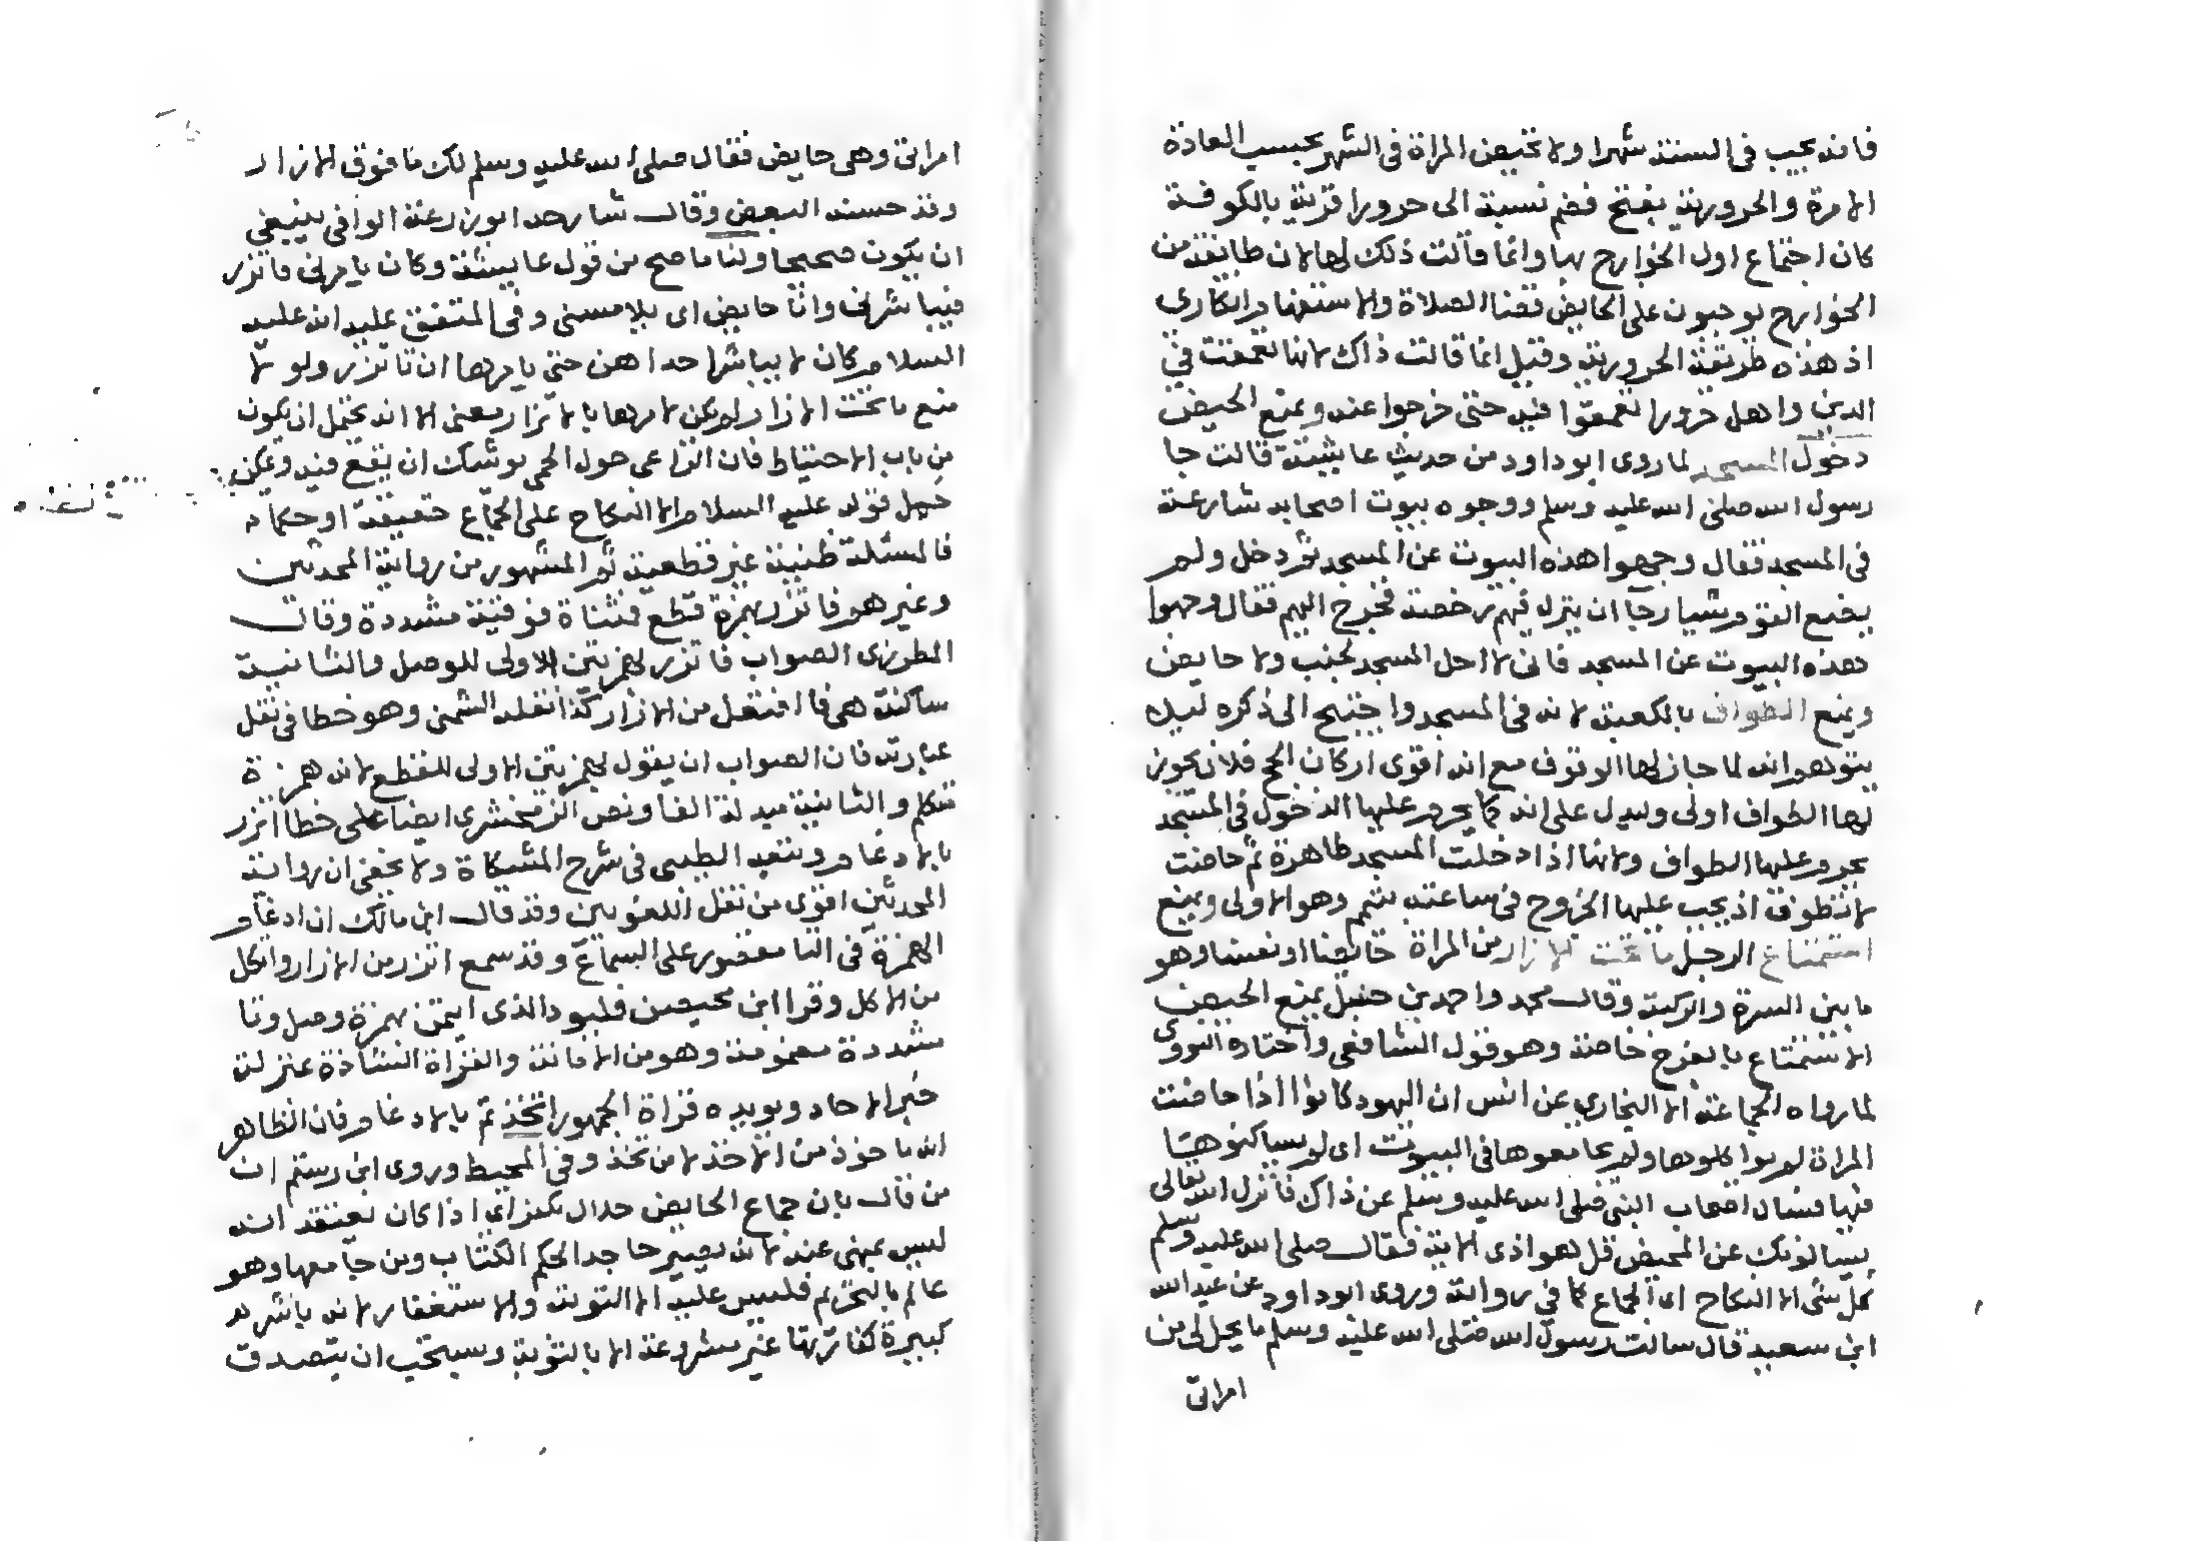 فانه يجب في السنة شهرا ولا تحيض المراة في الشهر بحسب العادة
الامرة والحرورية بفتح فضم نسبة الى حرورا قرية بالكوفة
كان اجتماع اول الخوارج بها وانما قالت ذلك لها لان طائفة من
الخوارج يوجبون على الحايض قضا الصلاة والاستفهام انكاري
اذ هذه طريقة الحرورية وقيل انما قالت ذاك لانها تعمقت في
الدين واهل حرورا تعمقوا فيه حتى خرجوا عنه ويمنع الحيض
دخول المسجد لما روى ابو داود من حديث عايشة قالت جا
رسول الله صلى الله عليه وسلم ووجوه بيوت اصحابه شارعة
في المسجد فقال وجهوا هذه البيوت عن المسجد ثم دخل ولم
يصنع القوم شيا رجآ ان ينزل فيهم رخصة فخرج اليهم فقال وجهوا
هذه البيوت عن المسجد فاني لا احل المسجد لجنب ولا حايض
ويمنع الطواف بالكعبة لانه في المسجد واحتيج الى ذكره ليلا
يتوهم انه لما جاز لها الوقوف مع انه اقوى اركان الحج فلان يجوز
لها الطواف اولى وليدل على انه كما يحرم عليها الدخول في المسجد
يحرم عليها الطواف ولانها اذا دخلت المسجد طاهرة ثم حاضت
لا تطوف اذ يجب عليها الخروج في ساعته ثم وهو الاولى ويمنع
استمتاع الرجل ما تحت الازار من المراة حايضا او نفسا وهو
ما بين السرة والركبة وقال محمد واحمد بن حنبل يمنع الحيض
الاستمتاع بالفرج خاصة وهو قول الشافعي واختاره النووى
لما رواه الجماعة الا البخاري عن انس ان اليهود كانوا اذا حاضت
المراة لم يواكلوها ولم يجامعوها في البيوت اى لم يساكنوها
فيها فسال اصحاب النبي صلى الله عليه وسلم عن ذاك فانزل الله تعالى
يسالونك عن المحيض قل هو اذى الاية فقال صلى الله عليه وسلم
كل شي الا النكاح اى الجماع كما في رواية وروى ابو داود عن عبد الله
ابن سعيد قال سالت رسول الله صلى الله عليه وسلم ما يحل لي من
امراتى
امراتى وهي حايض فقال صلى الله عليه وسلم لك ما فوق الازار
وقد حسنه البعض وقال شارحه ابو زرعة الوافي ينبغي
ان يكون صحيحا ولنا ما صح من قول عايشة وكان يامرني فاتزر
فيباشرني وانا حايض اى يلامسني وفي المتفق عليه انه عليه
السلام كان لا يباشر احداهن حتى يامرها ان تاتزر ولو لا
منع ما تحت الازار لم يكن لامرها بالاتزار معنى الا انه يحتمل ان يكون
من باب الاحتياط فان الراعى حول الحمى يوشك ان يقع فيه ويمكن
حمل قوله عليه السلام الا النكاح على الجماع حقيقة او حكما
فالمسئلة ظنية غير قطعية ثم المشهور من رواية المحدثين
وغيرهم فاتزر بهمزة قطع فمثناة فوقية مشددة وقال
المطرزى الصواب فاتزر بهمزتين الاولى للوصل والثانية
ساكنة هي فا افتعل من الازار كذا نقله الشمنى وهو خطا في نقل
عبارته فان الصواب ان يقول بهمزتين الاولى للقطع لانه همزة
متكلم والثانية مبدلة الفا ونص الزمخشرى ايضا على خطا اتزر
بالادغام وتبعه الطيبى في شرح المشكاة ولا يخفى ان رواية
المحدثين اقوى من نقل اللغويين وقد قال ابن مالك ان ادغام
الهمزة في التا مقصور على السماع وقد سمع اتزر من الازار واتكل
من الاكل وقرا ابن محيصن فليود الذى ايتمن بهمزة وصل وتا
مشددة مضمومة وهو من الامانة والقراة الشاذة بمنزلة
خبر الاحاد ويويده قراة الجمهور اتخذ تم بالادغام فان الظاهر
انه ماخوذ من الاخذ لا من تخذ وفي المحيط وروى ابن رستم ان
من قال بان جماع الحايض حلال يكفر اى اذا كان يعتقد انه
ليس بمنهى عنه لانه يصير جاحد الحكم الكتاب ومن جامعها وهو
عالم بالتحريم فليس عليه الا التوبة والاستغفار لانه باشر
كبيرة كفارتها غير مشروعة الا بالتوبة ويستحب ان يتصدق